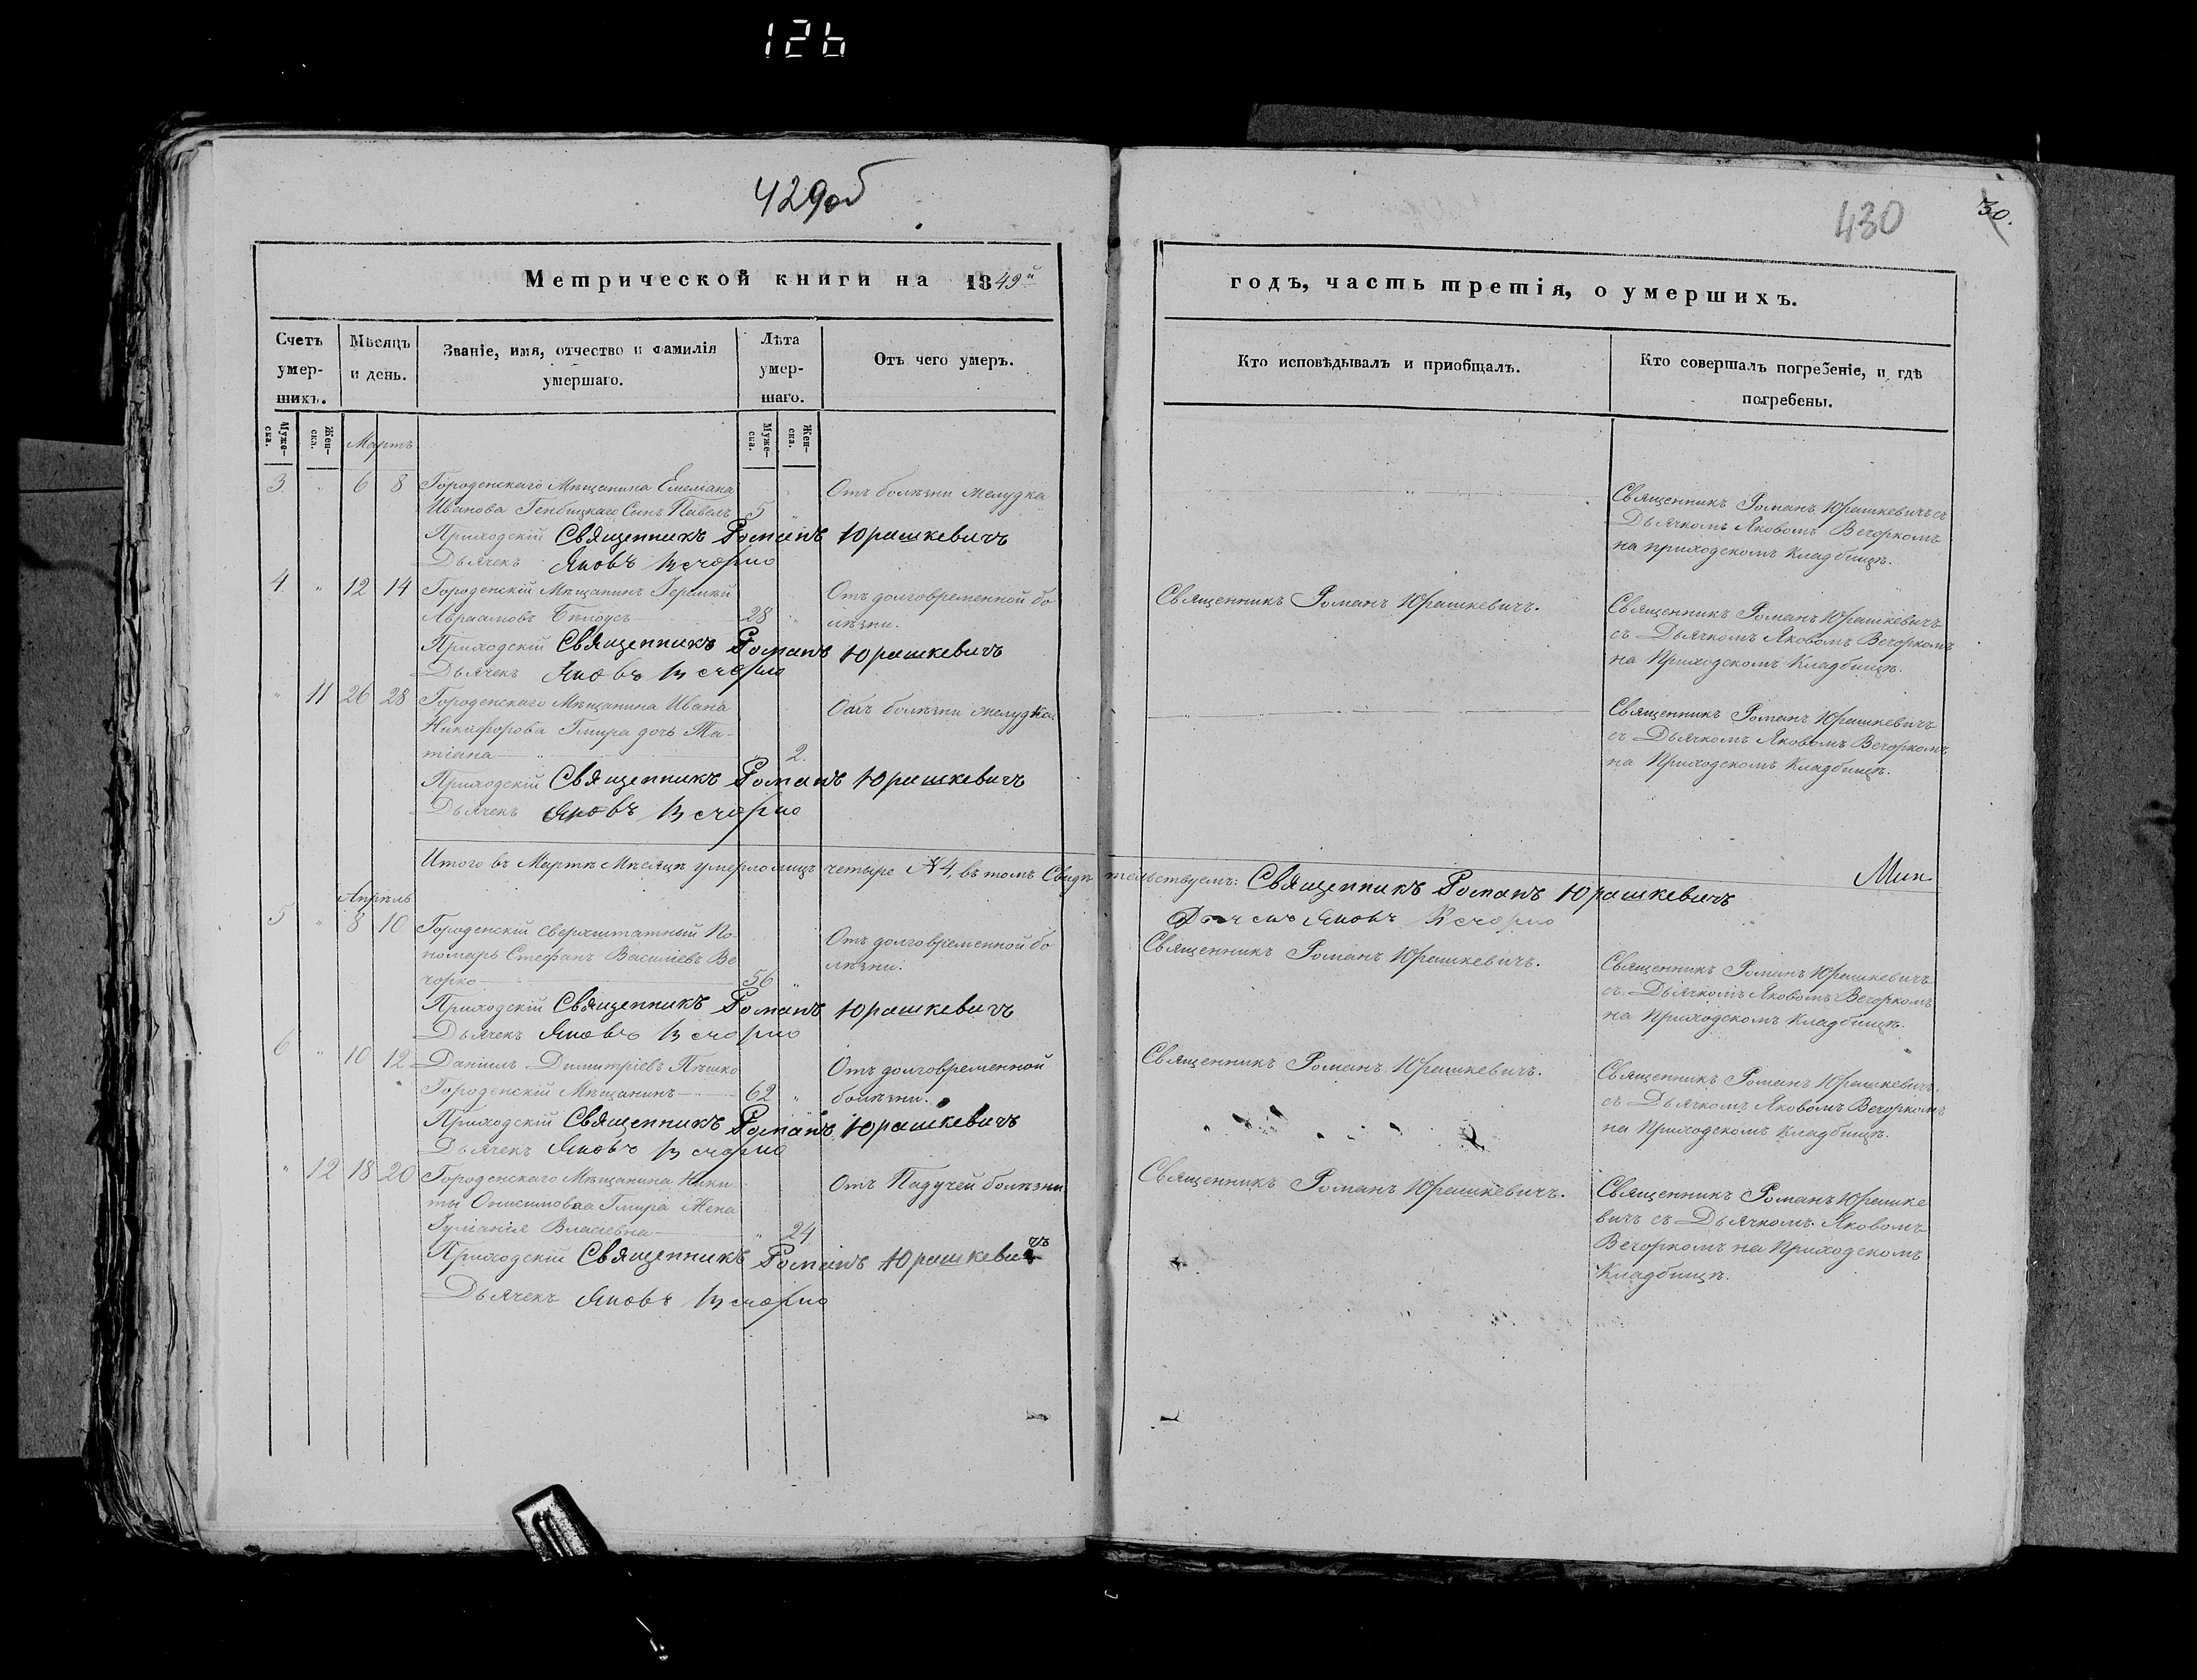 126
429об
430
30.
Метрической книги на 1849й
годъ, часть третія, о умершихъ.
Счетъ умер-шихъ.
Мѣсяцъ и день.
Званіе, имя, отчество и фамилія умершаго.
Лѣта умер-шаго.
Отъ чего умеръ.
Кто исповѣдывалъ и пріобщалъ.
Кто совершалъ погребеніе, и гдѣ погребены.
Муже-ска.
Жен-ска.
Муже-ска.
Жен-ска.
Мартъ
3 " 6 8 Городенскаго Мѣщанина
Иванова Сынъ Павелъ 5 "
Отъ болѣзни желудка
Священникъ Романъ Юрашкевичъ съ
Дьячкомъ Яковомъ Вечоркомъ
на приходскомъ Кладбищѣ.
Приходскій Священникъ Романъ Юрашкевичъ
Дьячекъ Яковъ Вечорко
4 " 12 14 Городенскій Мѣщанинъ Іеремѣй
Авраамовъ Бѣлоусъ 28 "
Отъ долговременной бо
лѣзни.
Священникъ Романъ Юрашкевичъ.
Священникъ Романъ Юрашкевичъ
съ Дьячкомъ Яковомъ Вечоркомъ
на Приходскомъ Кладбищѣ.
Приходскій Священникъ Романъ Юрашкевичъ
Дьячекъ Яковъ Вечорко
" 11 26 28 Городенскаго Мѣщанина Ивана
Никифорова Гмира дочь Та-
тіана " 2.
Отъ болѣзни желудка
Священникъ Романъ Юрашкевичъ
съ Дьячкомъ Яковомъ Вечоркомъ
на Приходскомъ Кладбищѣ.
Приходскій Священникъ Романъ Юрашкевичъ
Дьячекъ Яковъ Вечорко
Итого въ Мартѣ Мѣсяцѣ умерло лицъ четыре № 4, въ томъ Свидѣтельствуемъ: Священникъ Романъ Юрашкевичъ
Дьячекъ Яковъ Вечорко
Апрѣль
5 " 8 10 Городенскій Сверхштатный По
номарь Стефанъ Василіевъ Ве
чорко 56 "
Отъ долговременной бо
лѣзни.
Священникъ Романъ Юрашкевичъ.
Священникъ Романъ Юрашкевичъ
съ Дьячкомъ Яковомъ Вечоркомъ
на Приходскомъ Кладбищѣ.
Приходскій Священникъ Романъ Юрашкевичъ
Дьячекъ Яковъ Вечорко
6 " 10 12 Даніилъ Димитріевъ Пѣшко
Городенскій Мѣщанинъ 62 "
Отъ долговременной
болѣзни.
Священникъ Романъ Юрашкевичъ.
Священникъ Романъ Юрашкевичъ
съ Дьячкомъ Яковомъ Вечоркомъ
на Приходскомъ Кладбищѣ.
Приходскій Священникъ Романъ Юрашкевичъ
Дьячекъ Яковъ Вечорко
" 12 18 20 Городенскаго Мѣщанина Ники
ты Онисимова Гмира Жена
Іуліанія Власіевна " 24
Отъ Падучей болѣзни
Священникъ Романъ Юрашкевичъ.
Священникъ Романъ Юрашке
вичъ съ Дьячкомъ Яковомъ
Вечоркомъ на Приходскомъ
Кладбищѣ.
Приходскій Священникъ Романъ Юрашкевичъ
Дьячекъ Яковъ Вечорко